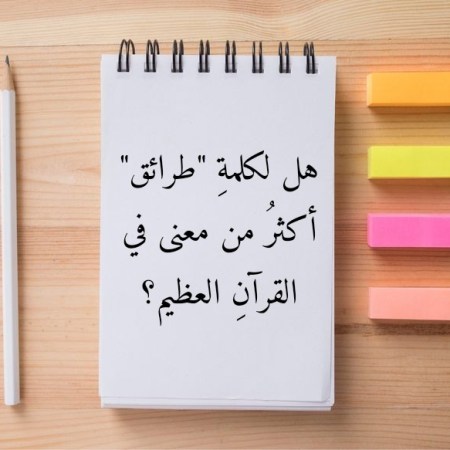 هل لكلمةِ "طرائق"
أكثرُ من معنى في
القرآنِ العظيم؟